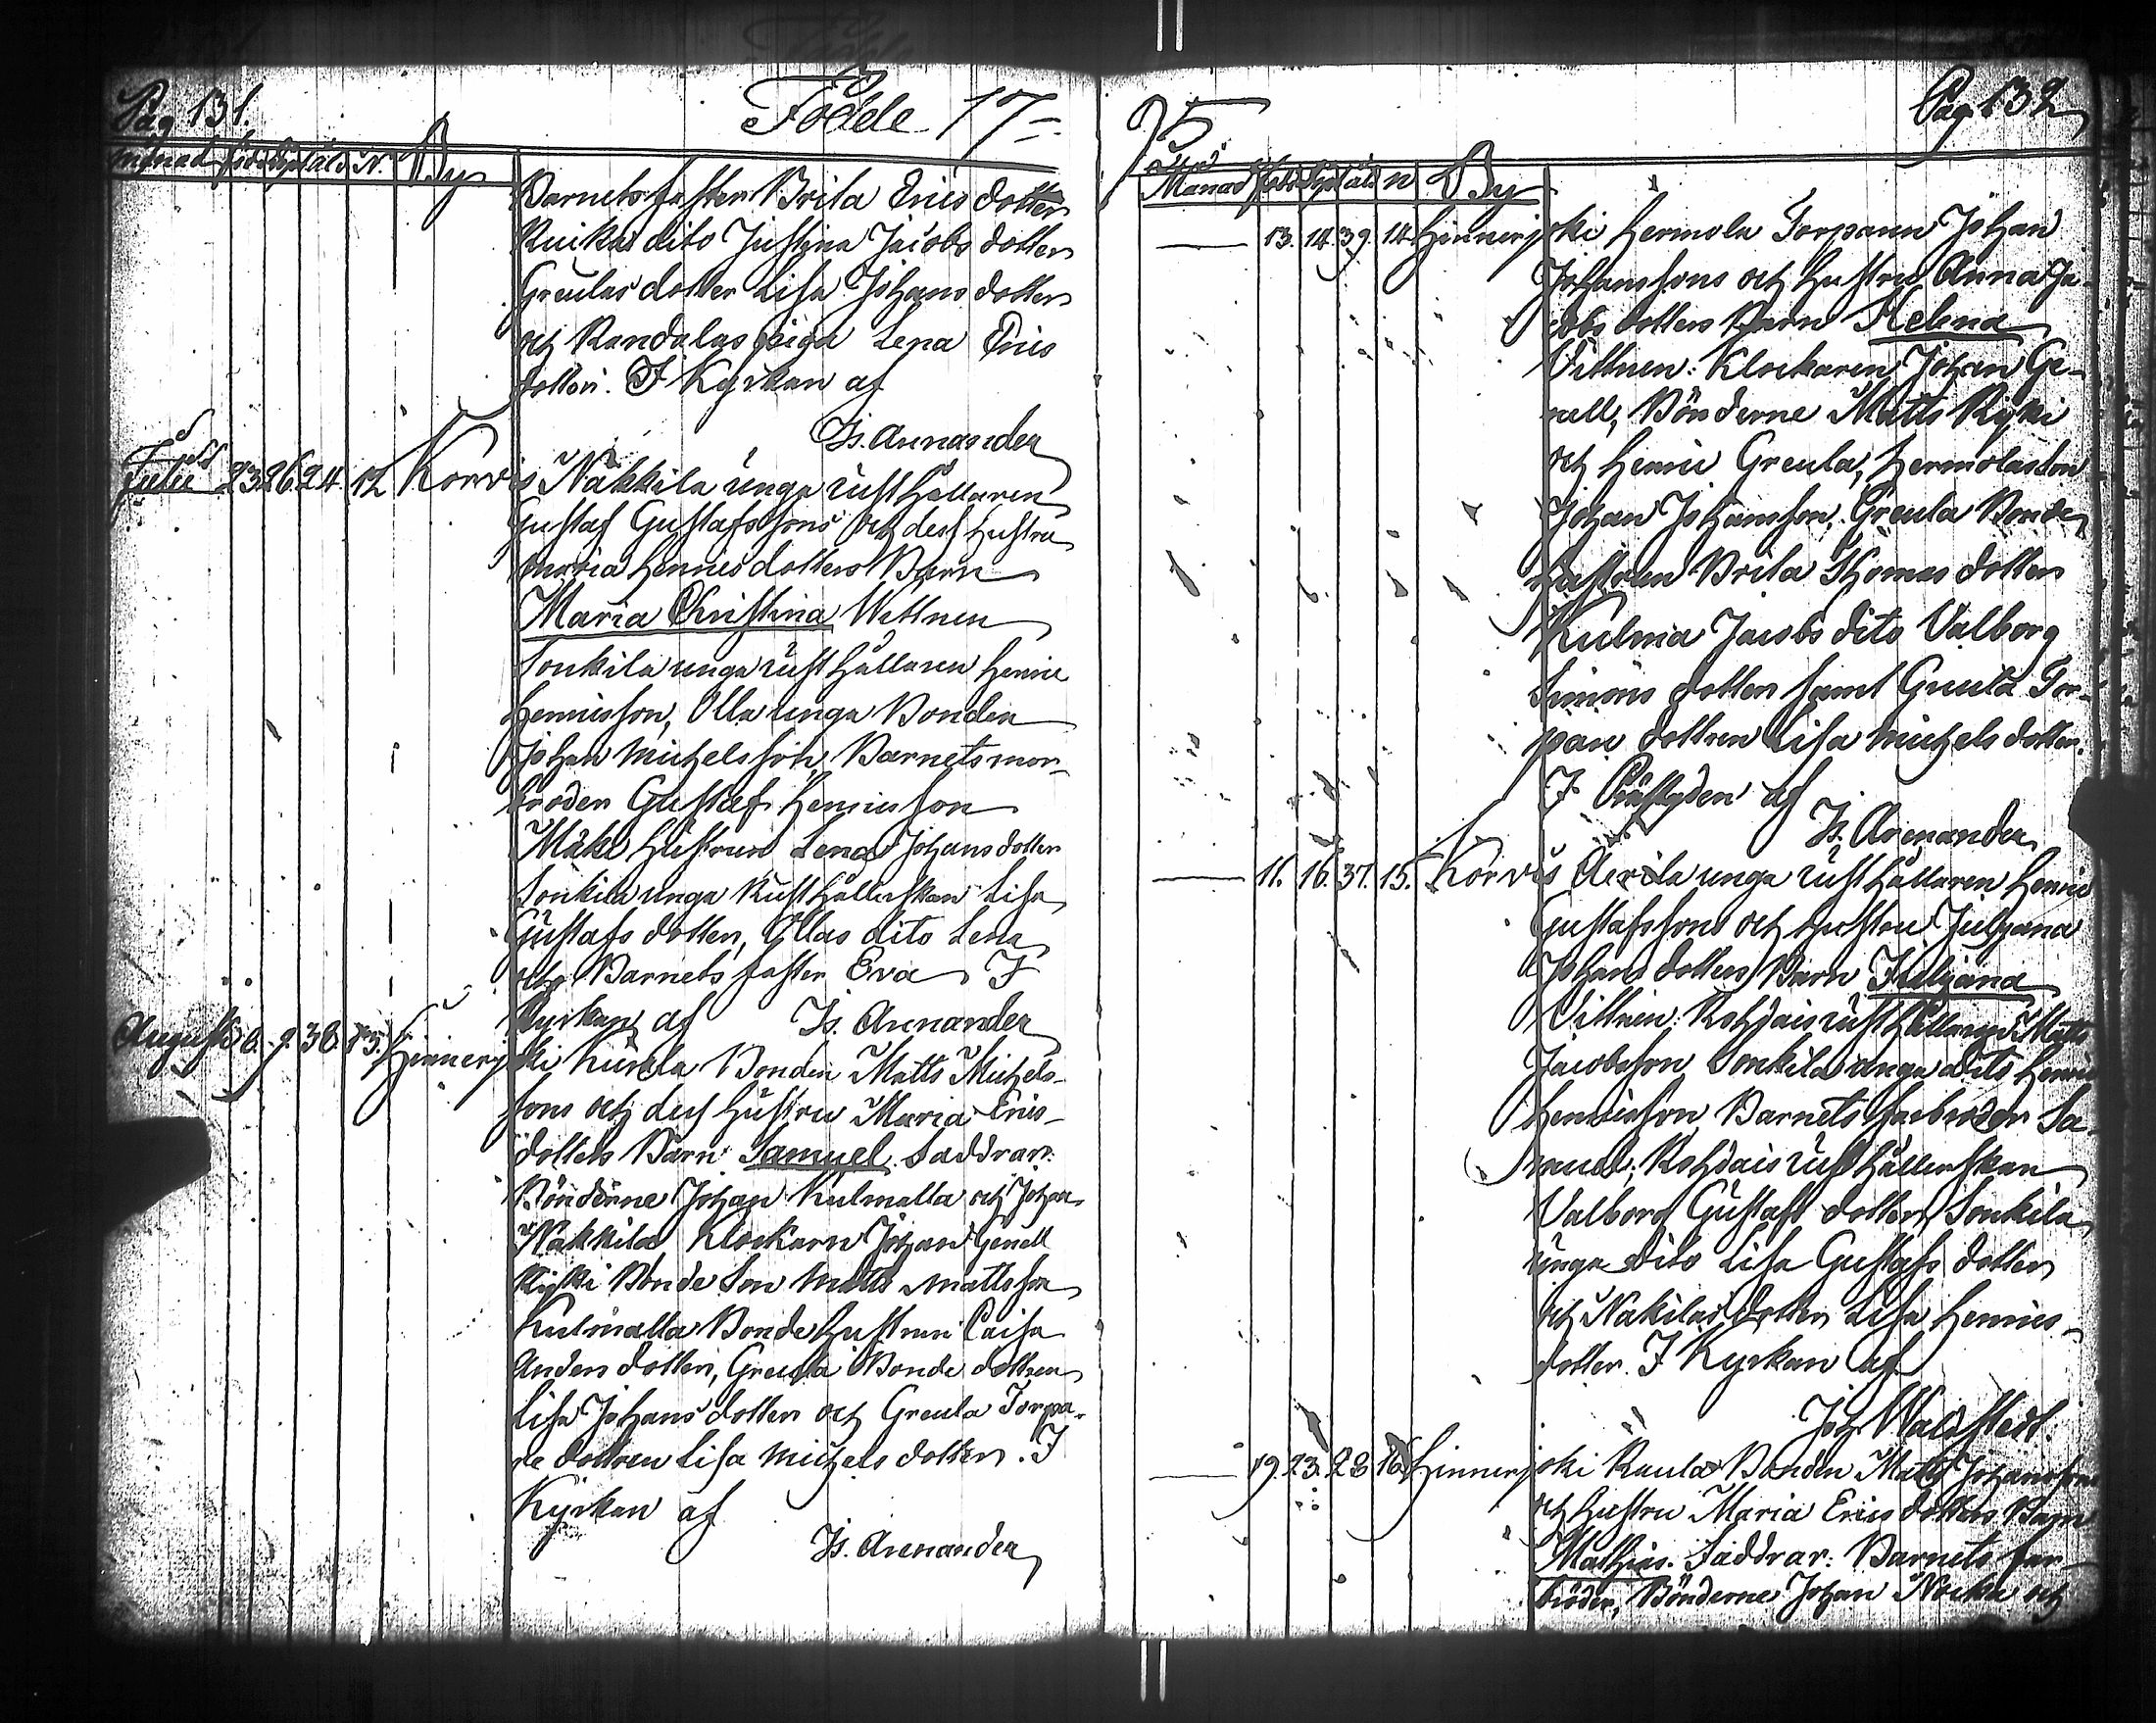 Pag 131.
Födde 17
Månad föds döpt åld N. By
Barnets faster Brita Erics dotter
dito Justina Jacobs dotter
Greulas dotter Lisa Johans dotter
och Randalas piga Lena Erics
dotter. I Kyrkan af
Is. Arenander
Julii 23. 26. 24. 12 Korvis Näkkila unga rusthållaren
Gustaf Gustafssons och dess hustru
Maria Henricsdotters Barn
Maria Christina Wittnen
Sonkila unga rusthållaren Henric
Henricsson, Olla unga Bonden
Johan Michelsson, Barnets mor-
broder Gustaf Henricsson
hustrun Lena Johans dotter
Sonkila unga Rusthållerskan Lisa
Gustafs dotter, Ollas dito Lena
och Barnets faster Eva I
Kyrkan af Is. Arenander
Augusti 6. 9. 38. 13. Hinnerjo
ki Bonden Matts Michels-
sons och dess hustru Maria Erics-
dotters Barn Samuel. Faddrar:
Bönderne Johan Kulmalla och Johan
Näkkila Klockarn Johan Genell
Ryki Bonde Son Matts Mattsson
Kulmalla Bonde hustrun Caisa
Anders dotter, Greula Bonde dottren
Lisa Johans dotter och Greula Torpa-
re dottren Lisa Michels dotter. I
Kyrkan af
Is. Arenander
75
Pag 132
Månad föds döpt åld N By
13. 14. 39. 14 Hinnerjoki Hermola Torparen Johan
Johanssons och hustru Anna Ja-
cobs dotters Barn Helena
Vittnen: Klockaren Johan Ge-
nell, Bönderne Matts Ryki
och Henric Greula, Hermolas Son
Johan Johansson, Greula Bonde
hustrun Brita Thomas dotter
Kulma Jacobs dito Valborg
Simons dotter samt Greula Tor-
par dottren Lisa Michels dotter.
I Prästgården af
Is. Arenander
11. 16. 37. 15. Korvis unga rusthållaren Henric
Gustafssons och hustru Julgana
Johans dotters Barn Julgana
Vittnen: Rohdais rusthållaren Matts
Jacobsson Sonkila unga dito Henric
Henricsson Barnets farbroder Sa-
muel, Rohdais rusthållerskan
Valborg Gustafs dotter, Sonkila
unga dito Lisa Gustafs dotter
och Näkilas dotter Lisa Henrics
dotter. I Kyrkan af
Joh. Waldstedt.
19. 23. 28 16. Hinnerjoki Raula Bonden Matts Johanssons
och hustru Maria Erics dotters Barn
Mathias. Faddrar: Barnets far-
broder, Bönderne Johan Nocka och